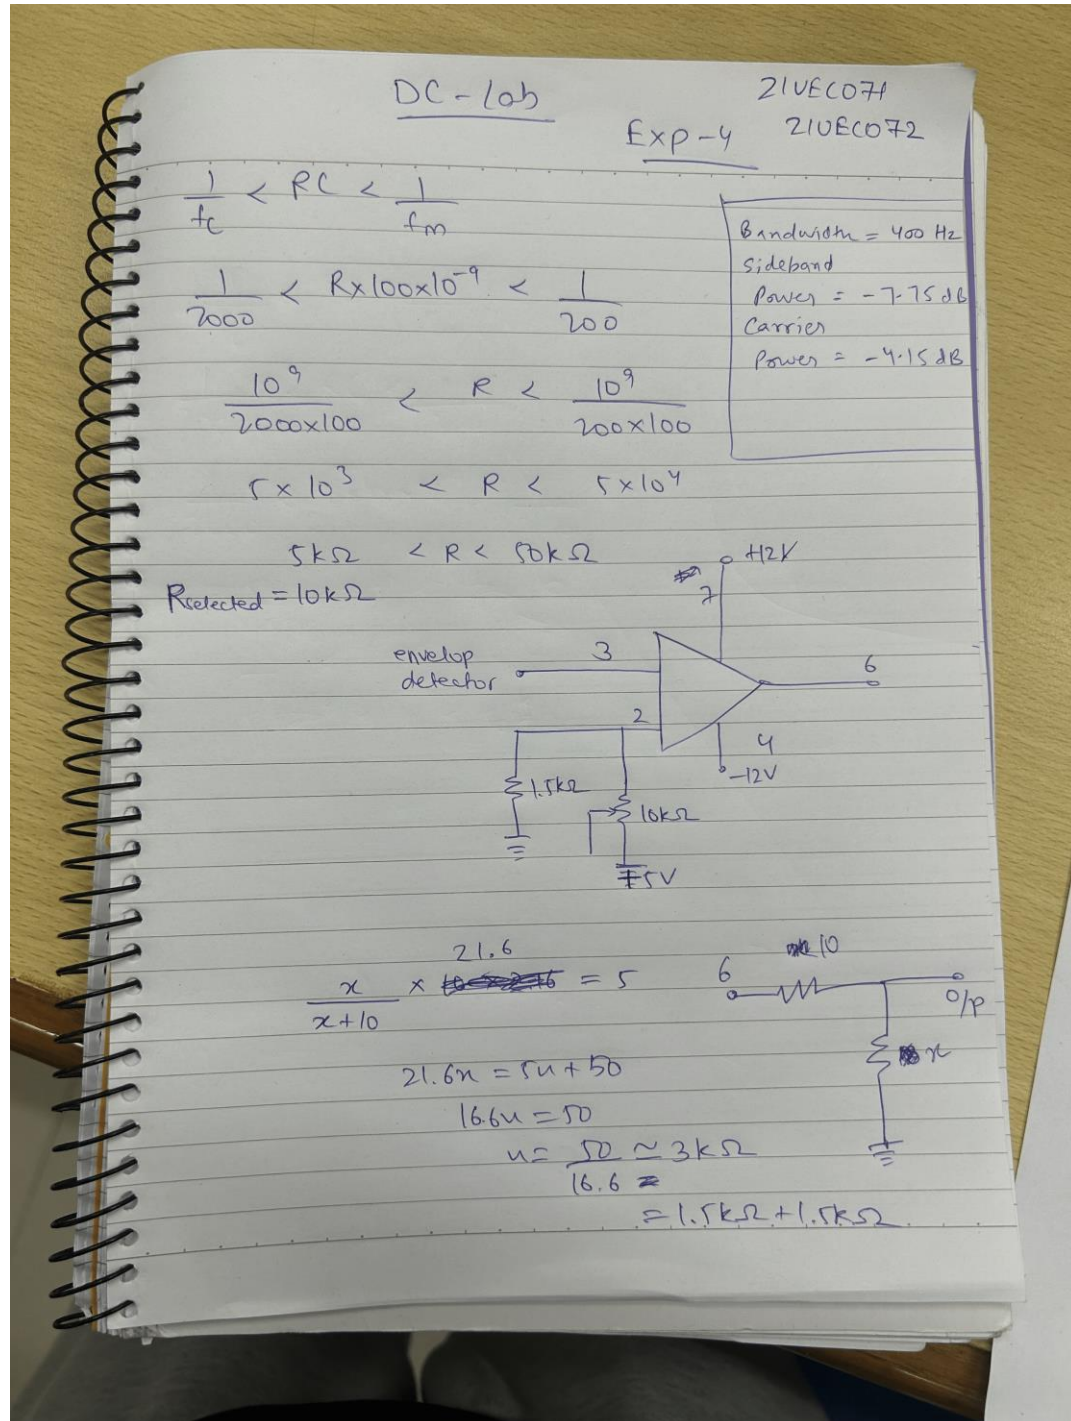 DC-lab
21UEC071
21UEC072
Exp-4
1/fc < RC < 1/fm
1/2000 < R×100×10⁻⁹ < 1/200
10⁹/2000×100 < R < 10⁹/200×100
5×10³ < R < 5×10⁴
5kΩ < R < 50kΩ
Rselected = 10kΩ
Bandwidth = 400 Hz
Sideband
Power = -7.75 dB
Carrier
Power = -4.15 dB
+12V
7
envelop
detector
3
6
2
4
-12V
1.5kΩ
10kΩ
5V
x/x+10 × 21.6 = 5
21.6x = 5x + 50
16.6x = 50
x = 50/16.6 ≃ 3kΩ
= 1.5kΩ + 1.5kΩ
6
10
O/p
x